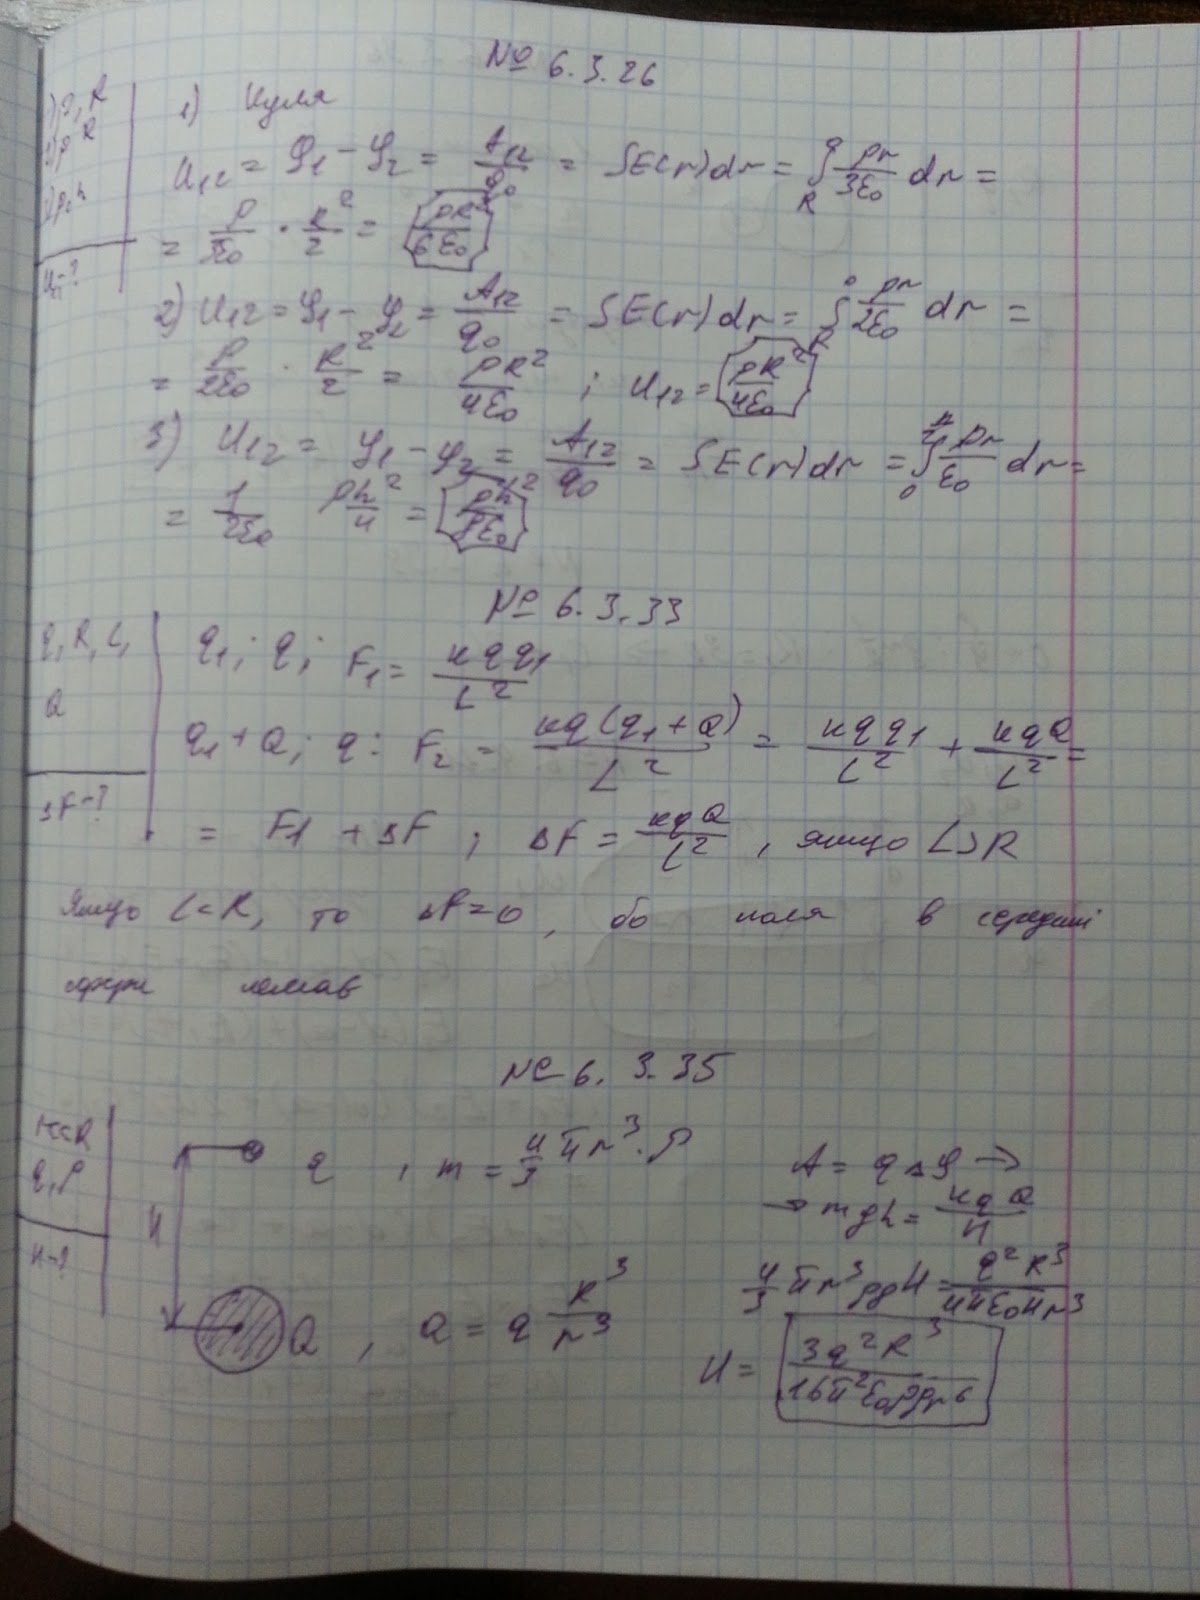 № 6.3.26
1) ρ, R
2) ρ R
3) ρ, h
U₁₂-?
1) Куля
U₁₂ = φ₁ - φ₂ = A₁₂/q₀ = ∫E(r)dr = ∫ ρr/3ε₀ dr =
= ρ/3ε₀ · R²/2 = ρR²/6ε₀
2) U₁₂ = φ₁ - φ₂ = A₁₂/q₀ = ∫E(r)dr = ∫ ρr/2ε₀ dr =
= ρ/2ε₀ · R²/2 = ρR²/4ε₀ ; U₁₂ = ρR²/4ε₀
3) U₁₂ = φ₁ - φ₂ = A₁₂/q₀ = ∫E(r)dr = ∫ ρr/ε₀ dr =
= 1/2ε₀ ρh²/4 = ρh²/8ε₀
№ 6.3.33
q, R, L,
Q
ΔF-?
q₁; q; F₁ = kqq₁/L²
q₁ + Q; q: F₂ = kq(q₁+Q)/L² = kqq₁/L² + kqQ/L² =
= F₁ + ΔF ; ΔF = kqQ/L² , якщо L>R
Якщо L<R, то ΔF=0, бо поля в середині
сфери немає
№ 6.3.35
r<<R
q, ρ
H-?
H
q , m = 4/3 πr³·ρ
A = qΔφ →
→ mgh = kqQ/H
Q , Q = q R³/r³
4/3 πr³ρgH = q²R³/4πε₀Hr³
H = 3q²R³/16π²ε₀ρgr⁶